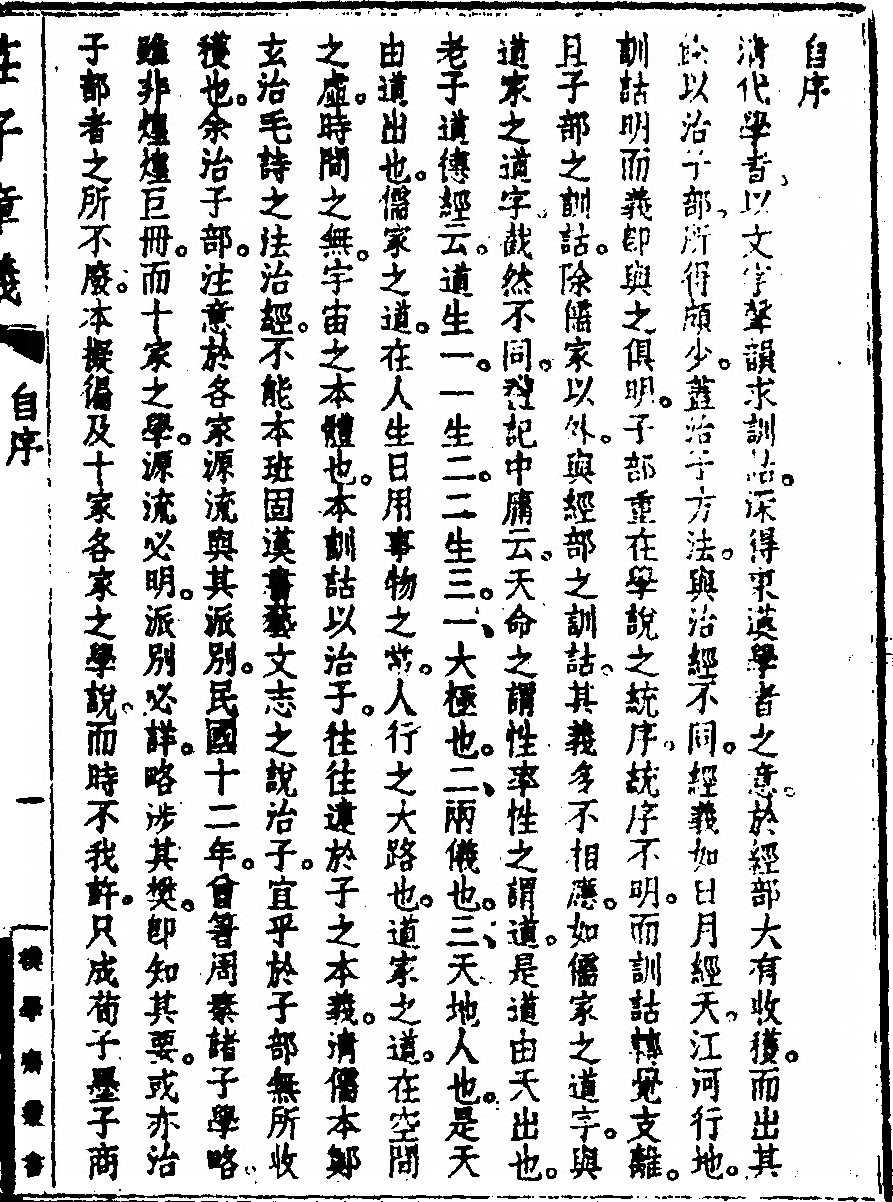 自序
清代學者、以文字聲韻求訓詁。深得東漢學者之意。於經部大有收獲。而出其
餘以治子部、所得頗少。蓋治子方法。與治經不同。經義如日月經天。江河行地。
訓詁明而義卽與之俱明。子部重在學說之統序。統序不明。而訓詁轉覺支離。
且子部之訓詁。除儒家以外。與經部之訓詁。其義多不相應。如儒家之道字。與
道家之道字。截然不同。禮記中庸云。天命之謂性率性之謂道。是道由天出也。
老子道德經云。道生一。一生二。二生三。一、大極也。二、兩儀也。三、天地人也。是天
由道出也。儒家之道。在人生日用事物之常。人行之大路也。道家之道。在空間
之虛。時間之無。宇宙之本體也。本訓詁以治子。往往違於子之本義。清儒本鄭
玄治毛詩之法治經。不能本班固漢書藝文志之說治子。宜乎於子部無所收
穫也。余治子部。注意於各家源流與其派別。民國十二年。曾箸周秦諸子學略。
雖非煌煌巨冊。而十家之學。源流必明。派別必詳。略涉其樊。卽知其要。或亦治
子部者之所不廢。本擬徧及十家各家之學說。而時不我許。只成荀子墨子商
莊子章義
自序
一
樸學齋叢書